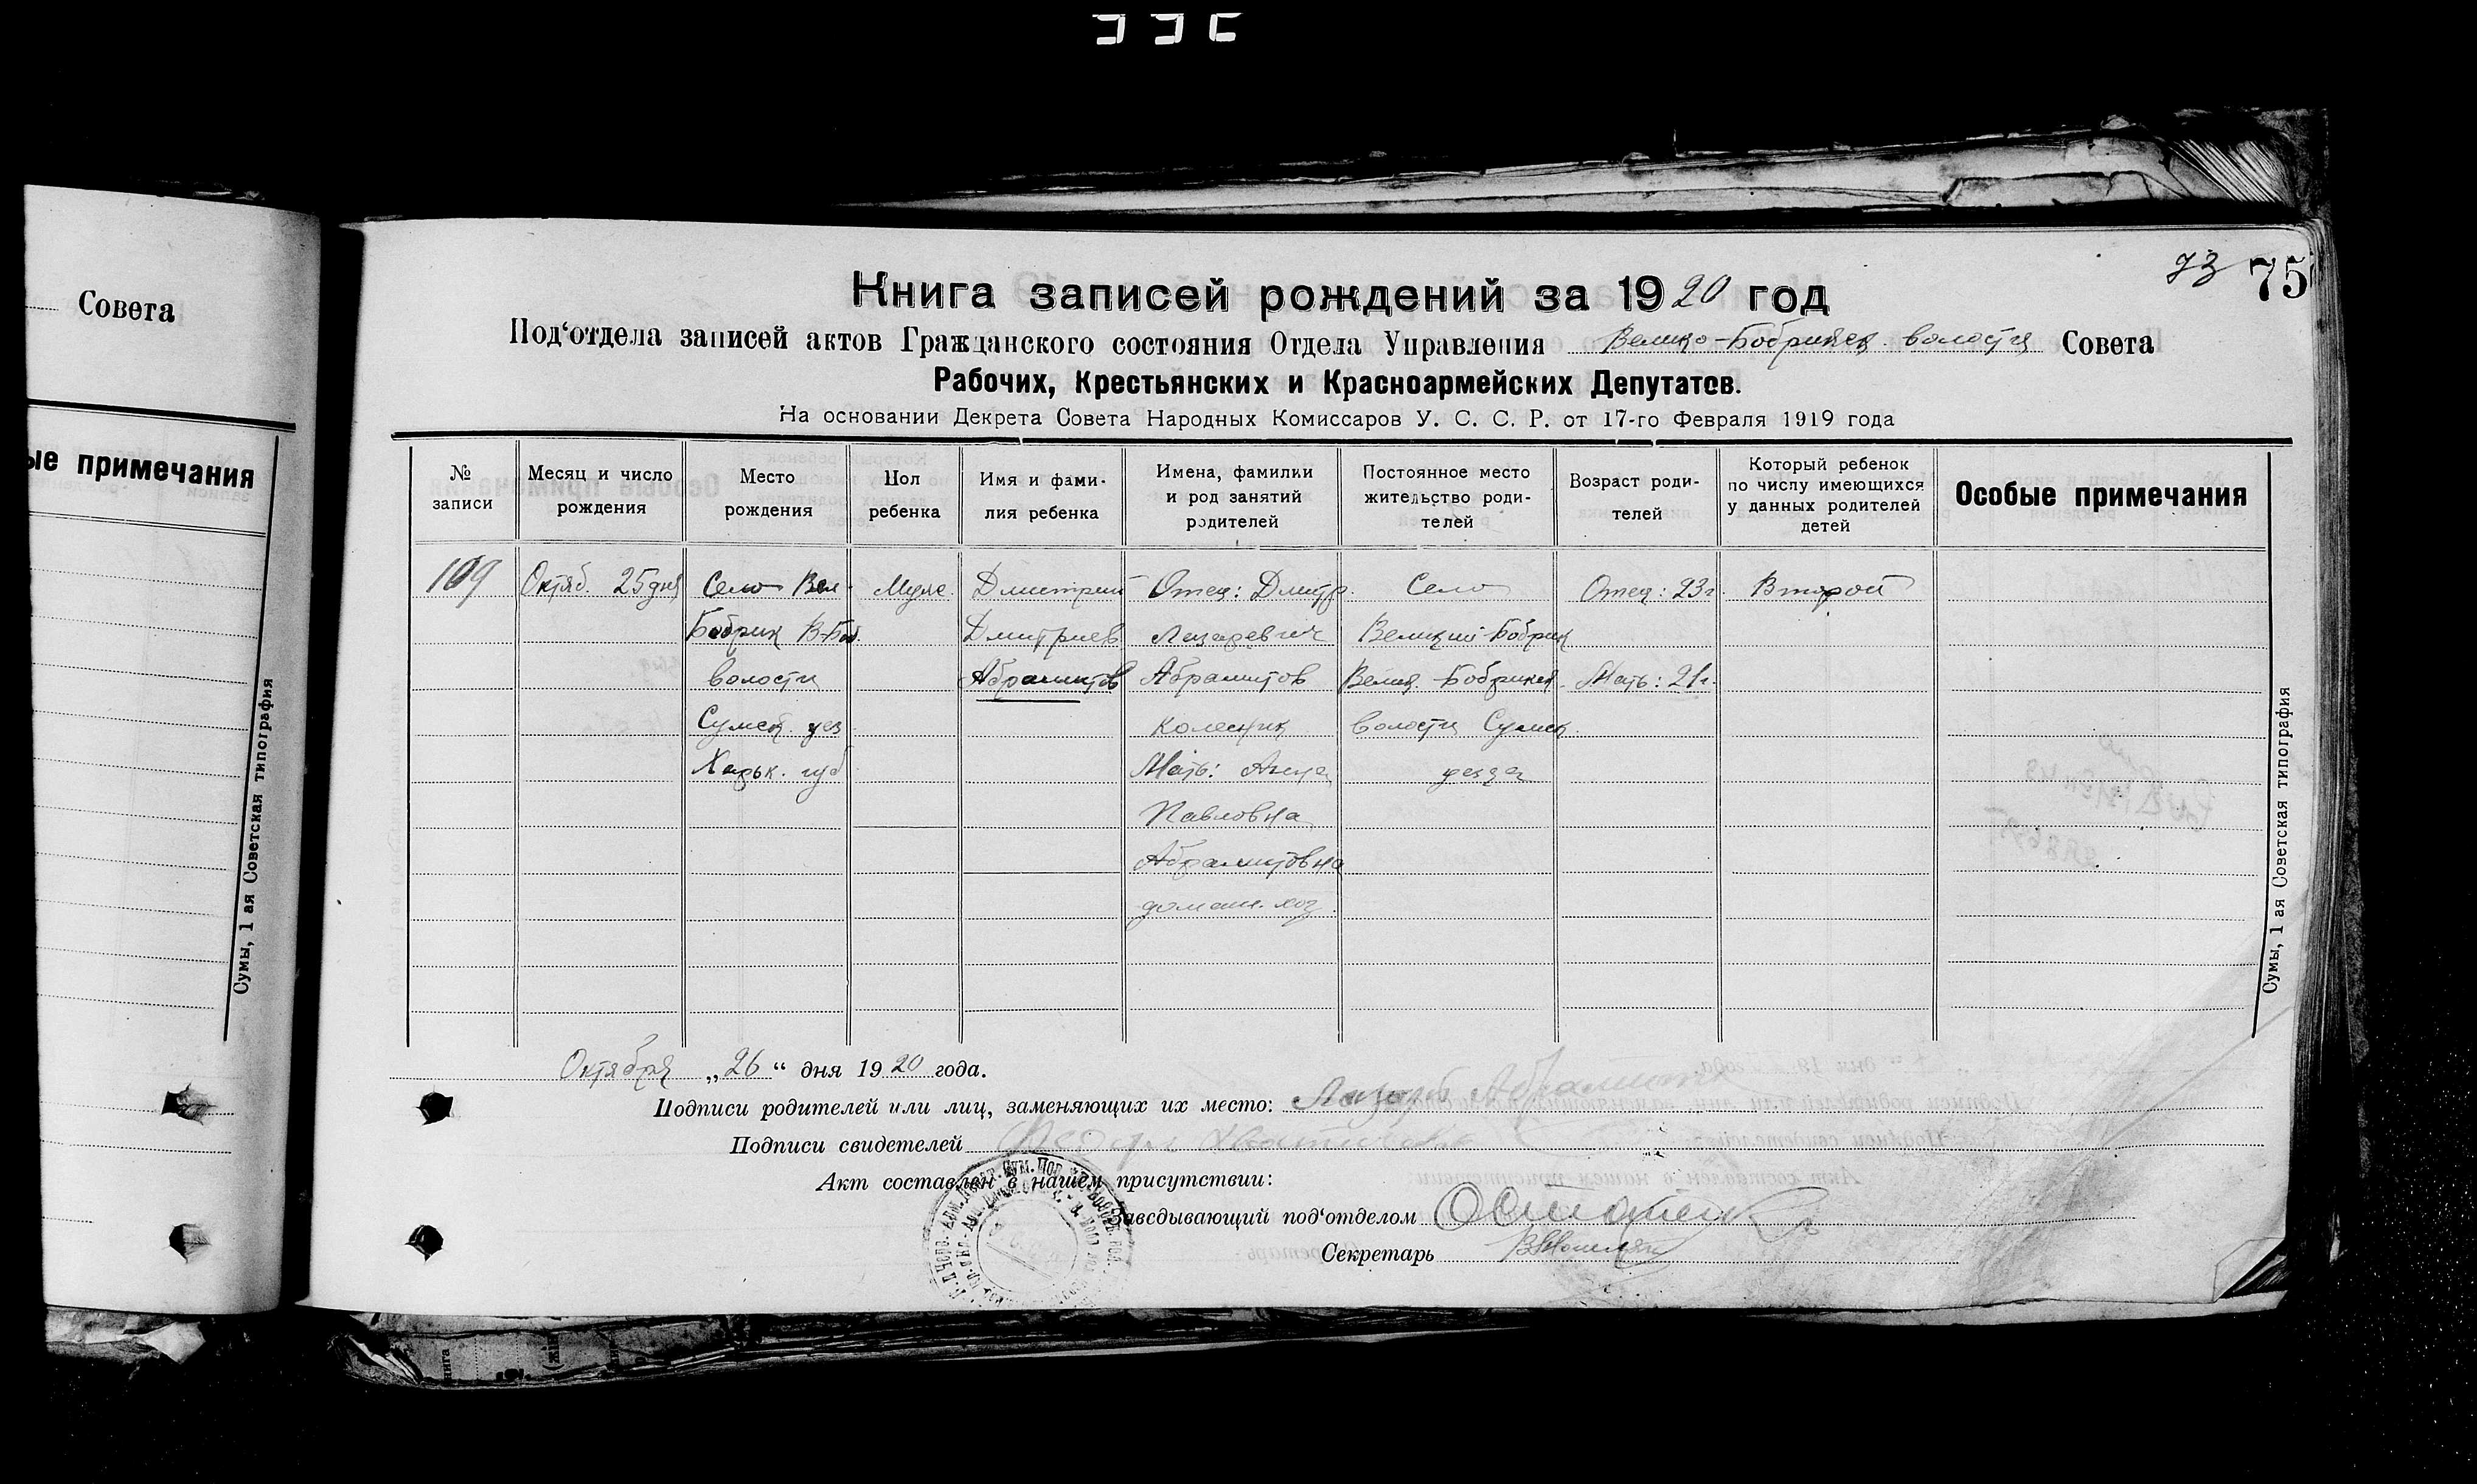 Совета
ые примечания
Сумы, 1 ая Советская типография
73 75
Книга записей рождений за 1920 год
Под‘отдела записей актов Гражданского состояния Отдела Управления Велико-Бобрицкой волости Совета
Рабочих, Крестьянских и Красноармейских Депутатов.
На основании Декрета Совета Народных Комиссаров У. С. С. Р. от 17-го Февраля 1919 года
№ записи
Месяц и число рождения
Место рождения
Пол ребенка
Имя и фами-
лия ребенка
Имена, фамилии
и род занятий
родителей
Постоянное место
жительство роди-
телей
Возраст роди-
телей
Который ребенок
по числу имеющихся
у данных родителей
детей
Особые примечания
109
Октяб. 25 дня
Село Вел.
Бобрик В-Боб.
волости
Сумск. уез
Харьк. губ
Муж.
Дмитрий
Дмитриев
Абрамитов
Отец: Дмитр.
Лазаревич
Абрамитов
колесник
Мать: Анна
Павловна
Абрамитовна
домаш. хоз.
Село
Великий-Бобрик
Велик. Бобрицк.
волости Сумск.
уезда
Отец: 23г.
Мать: 21г.
Второй
Сумы, 1 ая Советская типография
Октября „26“ дня 1920 года.
Подписи родителей или лиц, заменяющих их место: Лазарь
Подписи свидетелей
Акт составлен в нашем присутствии:
Заведывающий под‘отделом
Секретарь